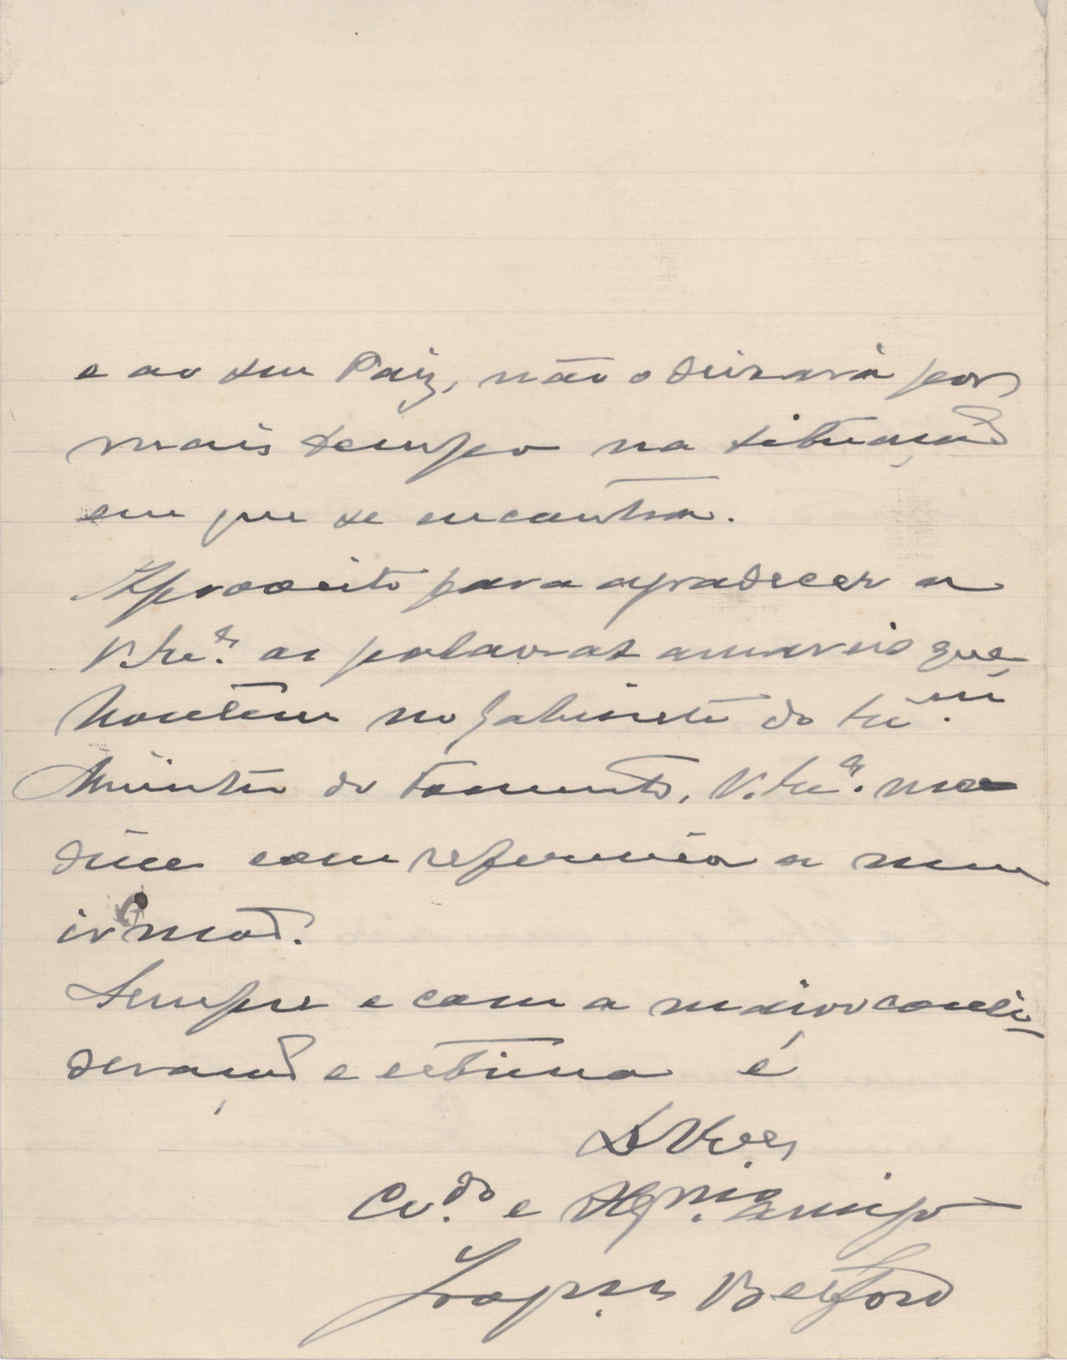 e ao seu Paiz, não o deixará por
mais tempo na situação
em que se encontra.
Aproveito para agradecer a
V. Ex.ª as palavras amaveis que
hontem no gabinete do Ex.mo
Ministro do Fomento, V. Ex.ª me
disse com referencia a meu
irmaõ.
Sempre e com a maior consi-
deração e estima é
De V. Ex.ª
Cr.do e Obg.mo amigo
Belford